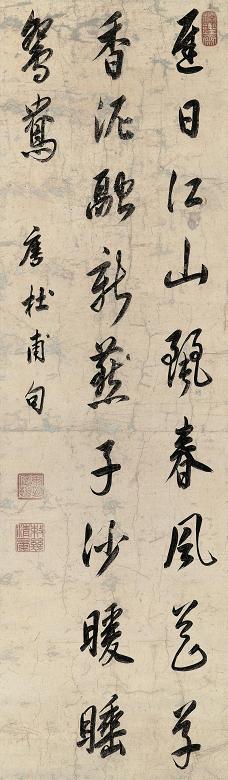 遲日江山麗春風花草
香泥融新燕子沙暖睡
鴛鴦
唐杜甫句